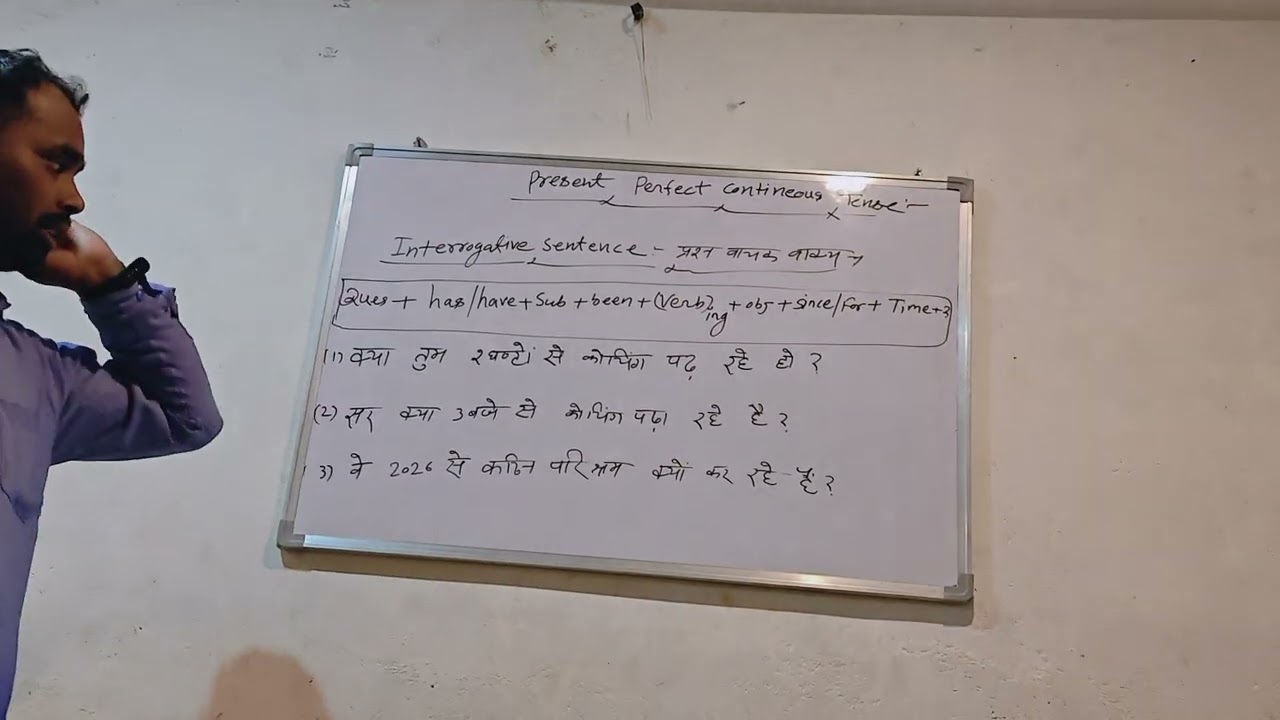 Present Perfect Contineous Tense:-
Interrogative sentence:- प्रश्न वाचक वाक्य →
Ques + has/have + Sub + been + (Verb) ing + obj + since/for + Time + ?
(1) क्या तुम 2 घण्टों से कोचिंग पढ़ रहे हो ?
(2) सर क्या 3 बजे से कोचिंग पढ़ा रहे है ?
3) वे 2026 से कठिन परिश्रम क्यों कर रहे हैं ?